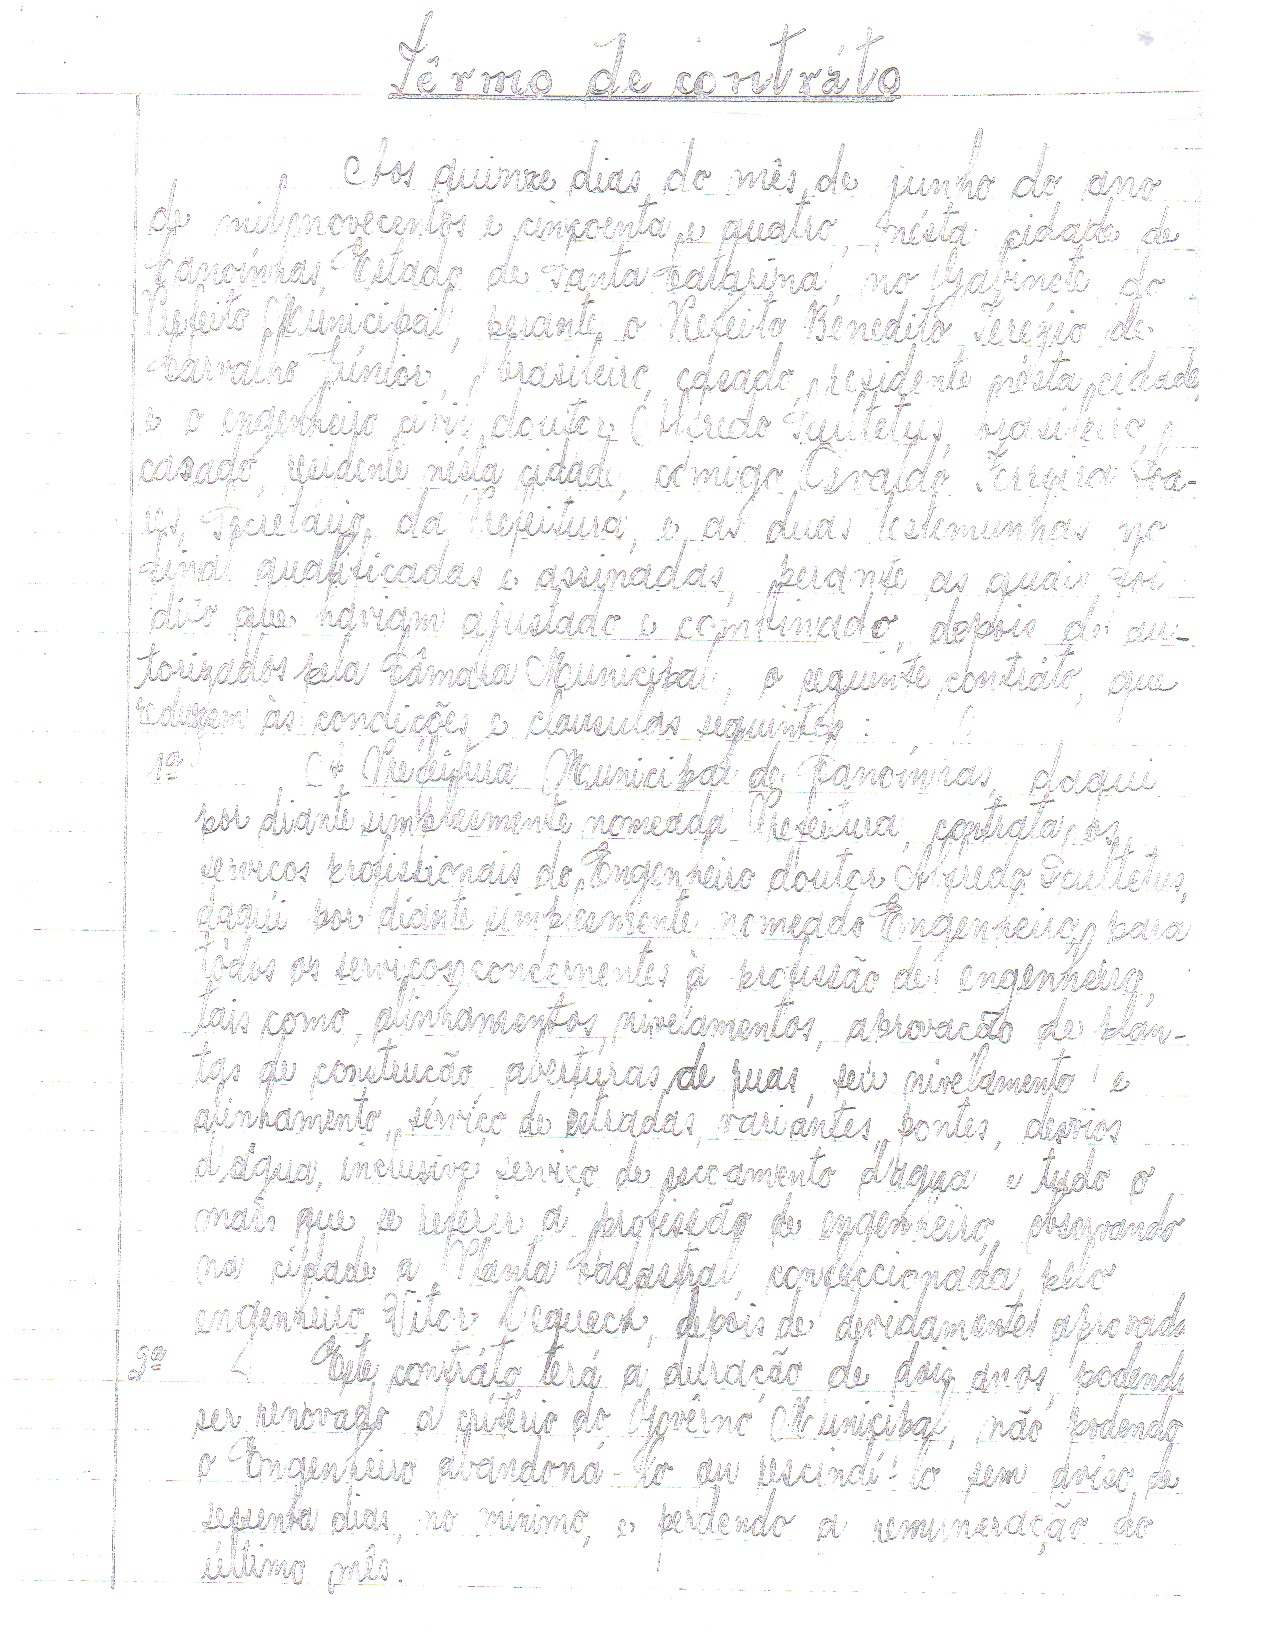 Têrmo de contráto
Aos quinze dias do mês de junho do ano
de mil novecentos e cincoenta e quatro, nésta cidade de
Canoínhas, Estado de Santa Catarina, no Gabinete do
Prefeito Municipal, perante o Prefeito Benedito Terézio de
Carvalho Júnior, brasileiro, casado, residente nésta cidade,
e o engenheiro civil doutor Alfredo Scultetus, brasileiro,
casado, residente nésta cidade, comigo Osvaldo Ferreira Soa-
res, Secretário da Prefeitura, e as duas testemunhas no
final qualificadas e assinadas, perante as quais foi
dito que haviam ajustado e combinado, depois de au-
torizados pela Câmara Municipal, o seguinte contráto, que
redigem às condições e clausulas seguintes:
1ª A Prefeitura Municipal de Canoínhas, daqui
por diante simplesmente nomeada Prefeitura, contrata os
serviços profissionais do Engenheiro doutor Alfredo Scultetus,
daqui por diante simplesmente nomeado Engenheiro, para
todos os serviços concernentes à profissão de engenheiro,
tais como, alinhamentos, nivelamentos, aprovacão de plan-
tas de construcão, aberturas de ruas, seu nivelamento e
alinhamento, serviço de estradas, variantes, pontes, desvios
d'água, inclusive serviço de seccamento d'água e tudo o
mais que se referir a profissão de engenheiro, observando
na cidade a Planta Cadastral, confeccionada pelo
engenheiro Vitor Dequech, depois de devidamente aprovada
2ª Este contráto terá a duração de dois anos, podendo
ser renovado a critério do Govêrno Municipal, não podendo
o Engenheiro abandoná-lo ou rescindí-lo sem aviso de
sessenta dias, no mínimo, e perdendo a remuneração do
último mês.